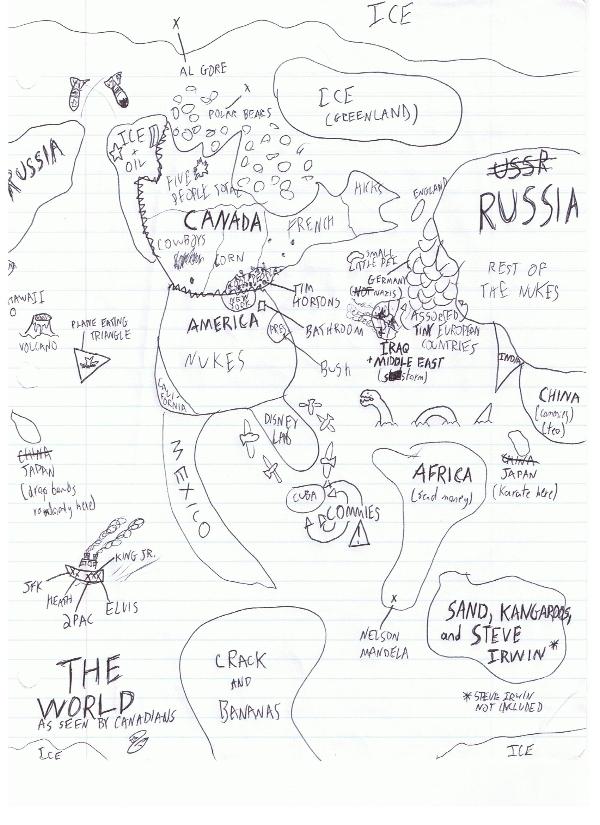 ICE
AL GORE
POLAR BEARS
ICE
(GREENLAND)
ICE
+
OIL
RUSSIA
FIVE
PEOPLE TOTAL
HICKS
ENGLAND
USSR
RUSSIA
CANADA
FRENCH
COWBOYS
CORN
SMALL
LITTLE
GERMANY
(NOT NAZIS)
REST OF
THE NUKES
HAWAII
VOLCANO
PLANE EATING
TRIANGLE
NEW
YORK
TIM
HORTONS
AMERICA
BATHROOM
ASSORTED
TINY EUROPEAN
COUNTRIES
IRAQ
+ MIDDLE EAST
NUKES
BUSH
INDIA
CALI-
FORNIA
CHINA
(commies)
(too)
DISNEY
LAND
MEXICO
CHINA
JAPAN
(drag bunds
randomly here)
AFRICA
(send money)
CHINA
JAPAN
(Karate here)
CUBA
COMMIES
!
KING JR.
JFK
HEATH
2PAC
ELVIS
NELSON
MANDELA
SAND, KANGAROOS,
and STEVE
IRWIN *
* STEVE IRWIN
NOT INCLUDED
CRACK
AND
BANANAS
THE
WORLD
AS SEEN BY CANADIANS
ICE
ICE